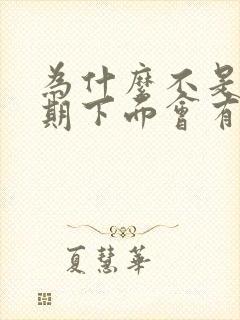 為什麼不是
期下而會有
夏慧華